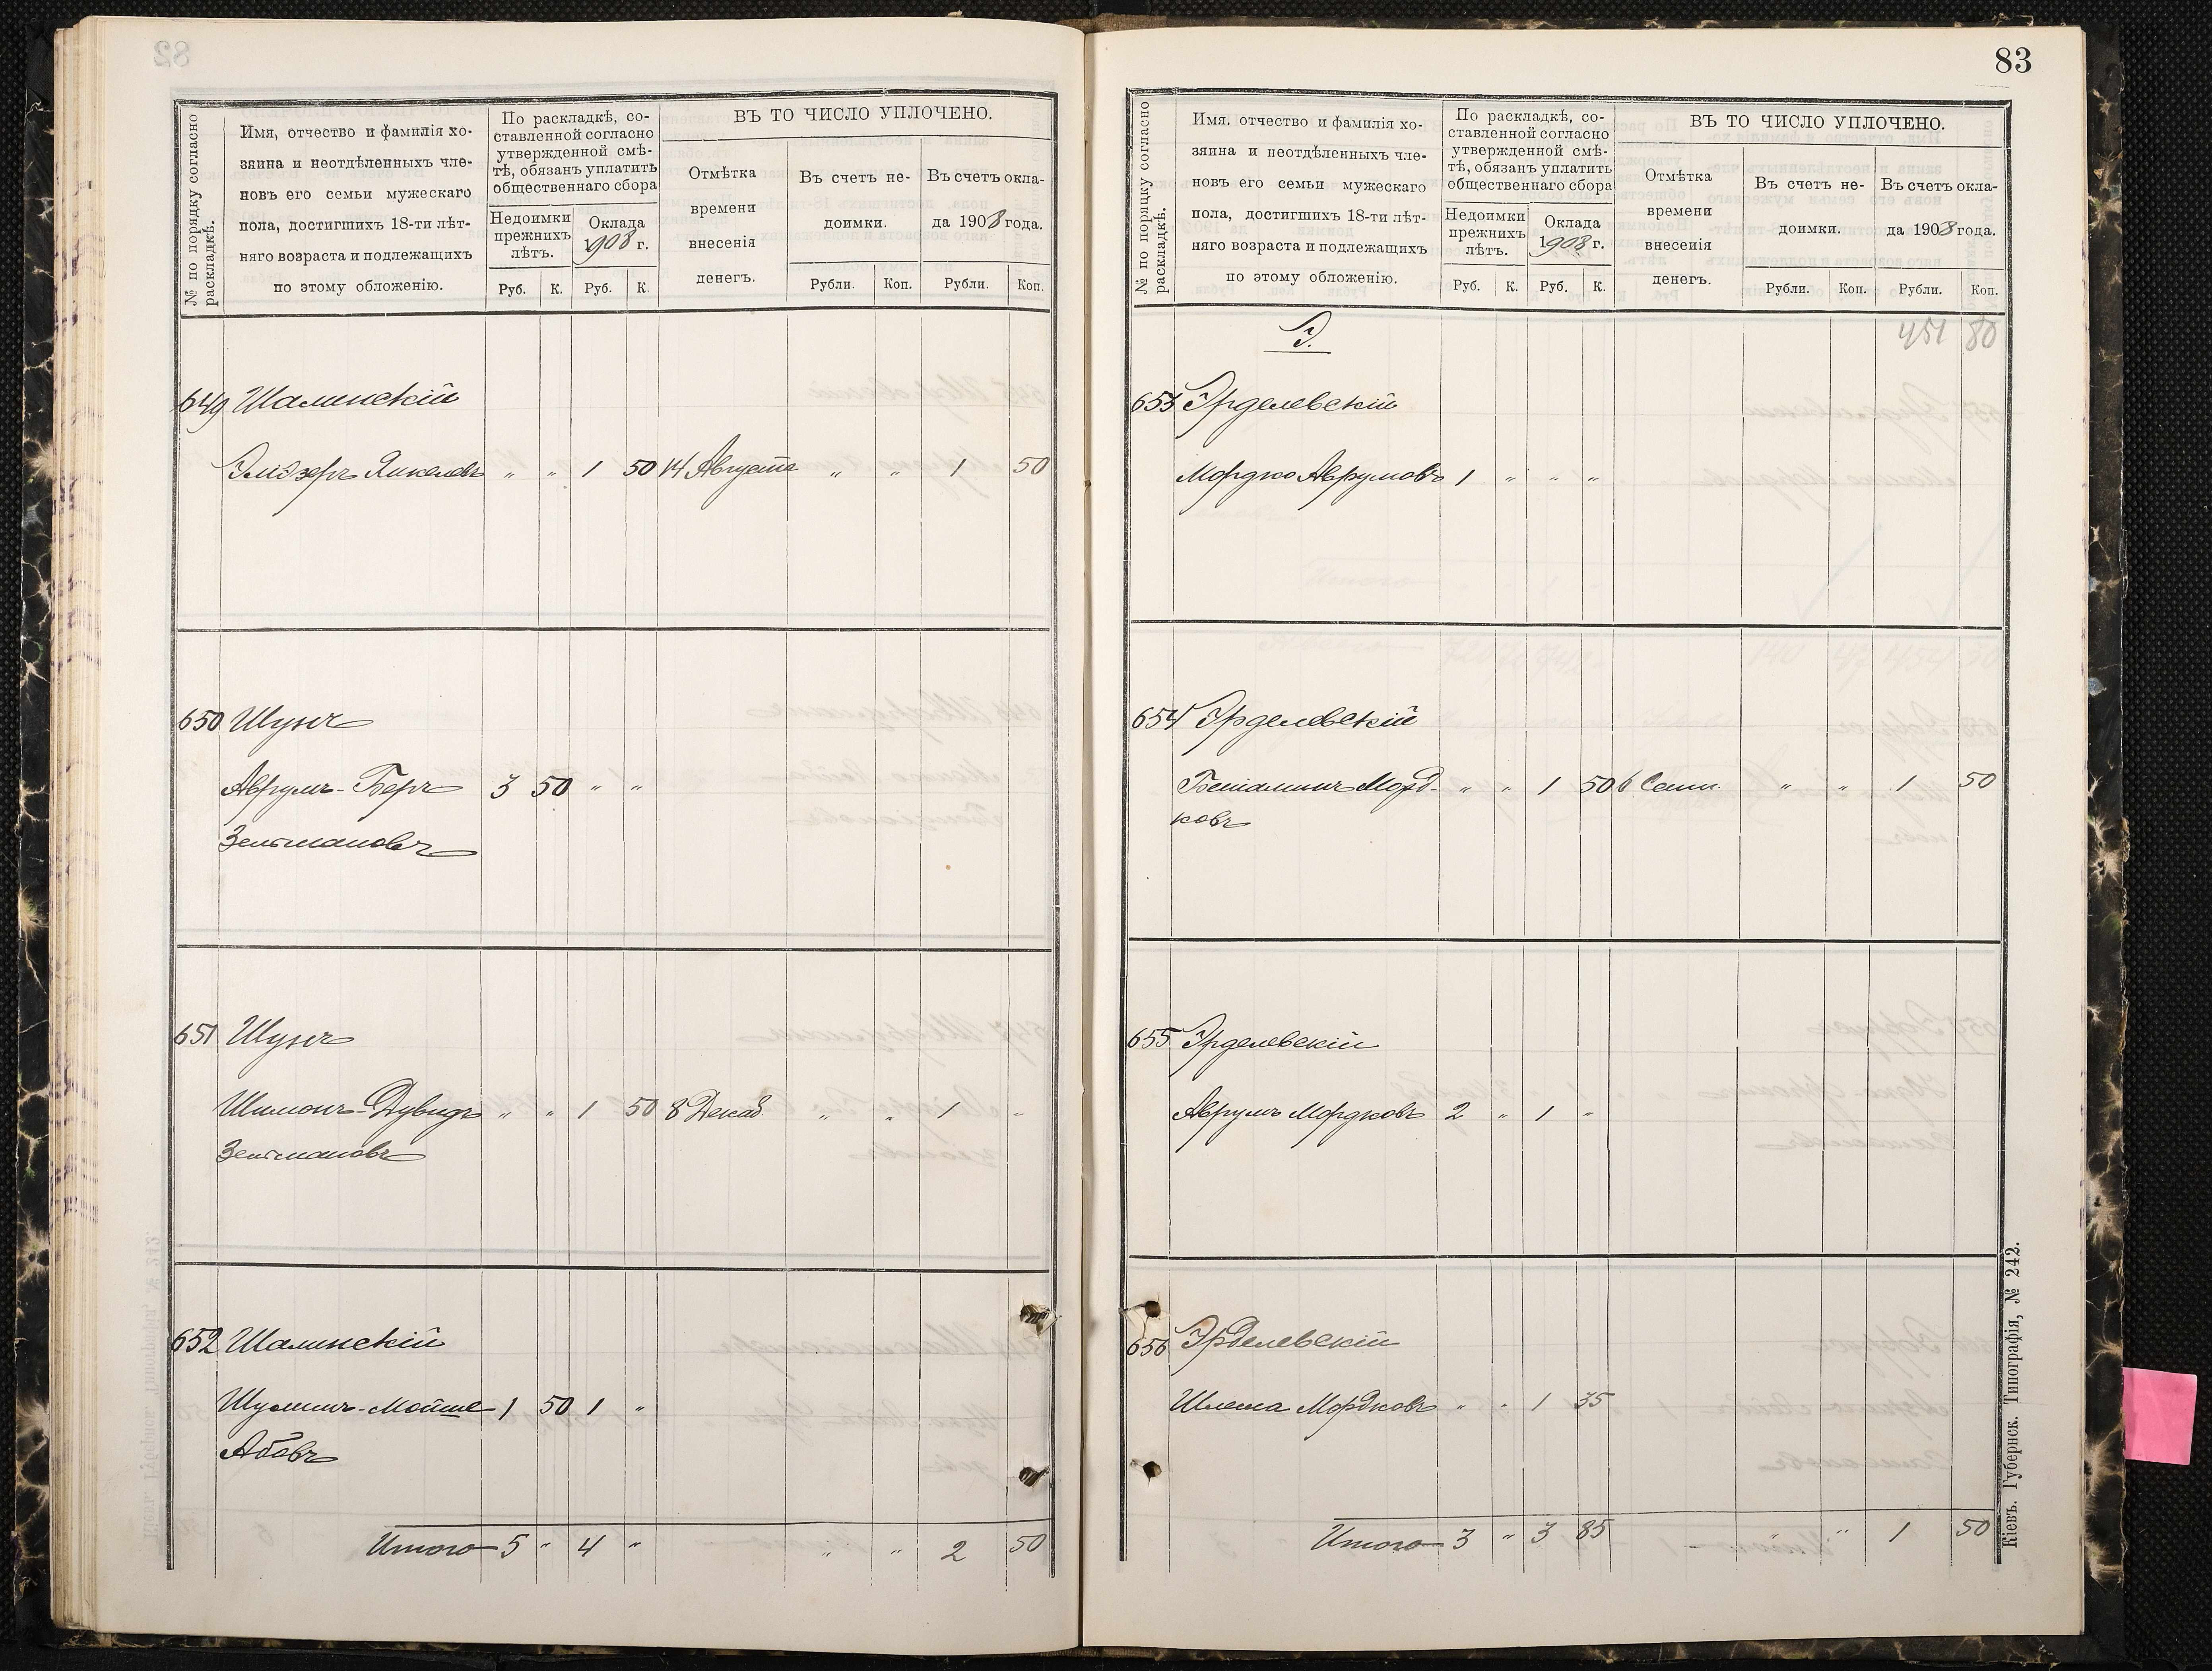 № по порядку согласно раскладкѣ.
Имя, отчество и фамилія хо-
зяина и неотдѣленныхъ чле-
новъ его семьи мужескаго
пола, достигшихъ 18-ти лѣт-
няго возраста и подлежащихъ
по этому обложенію.
По раскладкѣ, со-
ставленной согласно
утвержденной смѣ-
тѣ, обязанъ уплатить
общественнаго сбора
Недоимки прежнихъ лѣтъ.
Оклада 1908 г.
Руб. К. Руб. К.
ВЪ ТО ЧИСЛО УПЛОЧЕНО.
Отмѣтка времени внесенія денегъ.
Въ счетъ не-
доимки.
Рубли. Коп.
Въ счетъ окла-
да 1908 года.
Рубли. Коп.
649 Шалинскій
Элиэзеръ Янкелевъ „ „ 1 50 14 Августа „ „ 1 50
650 Шузъ
Аврумъ-Беръ 3 50 „ „
Зельмановъ
651 Шузъ
Шимонъ-Дувидъ „ „ 1 50 8 Декаб. „ „ 1 „
Зельмановъ
652 Шалинскій
Шулимъ-Мойше 1 50 1 „
Абовъ
Итого 5 „ 4 „ „ „ 2 50
83
№ по порядку согласно раскладкѣ.
Имя, отчество и фамилія хо-
зяина и неотдѣленныхъ чле-
новъ его семьи мужескаго
пола, достигшихъ 18-ти лѣт-
няго возраста и подлежащихъ
по этому обложенію.
По раскладкѣ, со-
ставленной согласно
утвержденной смѣ-
тѣ, обязанъ уплатить
общественнаго сбора
Недоимки прежнихъ лѣтъ.
Оклада 1908 г.
Руб. К. Руб. К.
ВЪ ТО ЧИСЛО УПЛОЧЕНО.
Отмѣтка времени внесенія денегъ.
Въ счетъ не-
доимки.
Рубли. Коп.
Въ счетъ окла-
да 1908 года.
Рубли. Коп.
Э.
451 80
653 Эрделевскій
Мордко Аврумовъ 1 „ „ „
654 Эрделевскій
Беніаминъ Морд- „ „ 1 50 6 Сент. „ „ 1 50
ковъ
655 Эрделевскій
Аврумъ Мордковъ 2 „ 1 „
656 Эрделевскій
Шлема Мордковъ „ „ 1 35
Итого 3 „ 3 85 „ „ 1 50
Кіевъ. Губернск. Типографія, № 242.